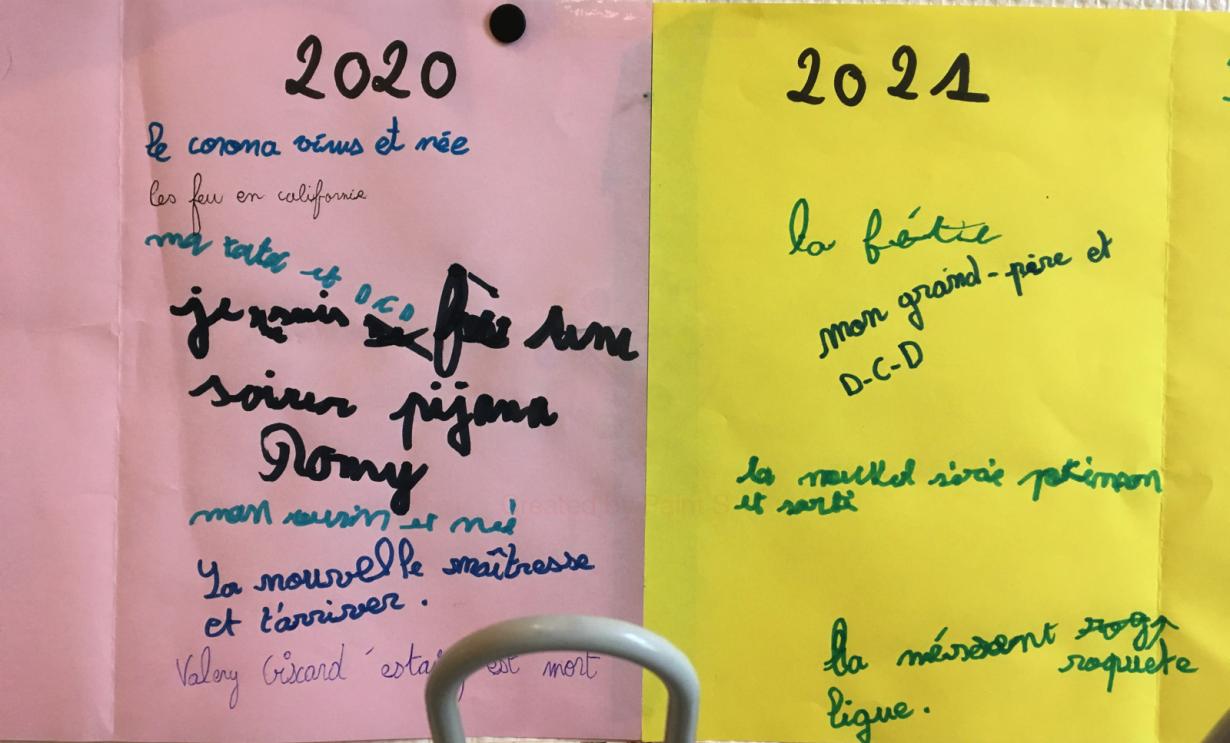 2020
le corona virus et née
les feu en californie
ma tata et D C D
je suis fêt une
soirer pijama
Romy
mon cousin et né
La nouvelle maîtresse
et t'arriver.
Valery Giscard estai est mort
2021
la
mon grand-père et
D-C-D
la nouvel série pokémon
et sorti
la
roquete
ligue.